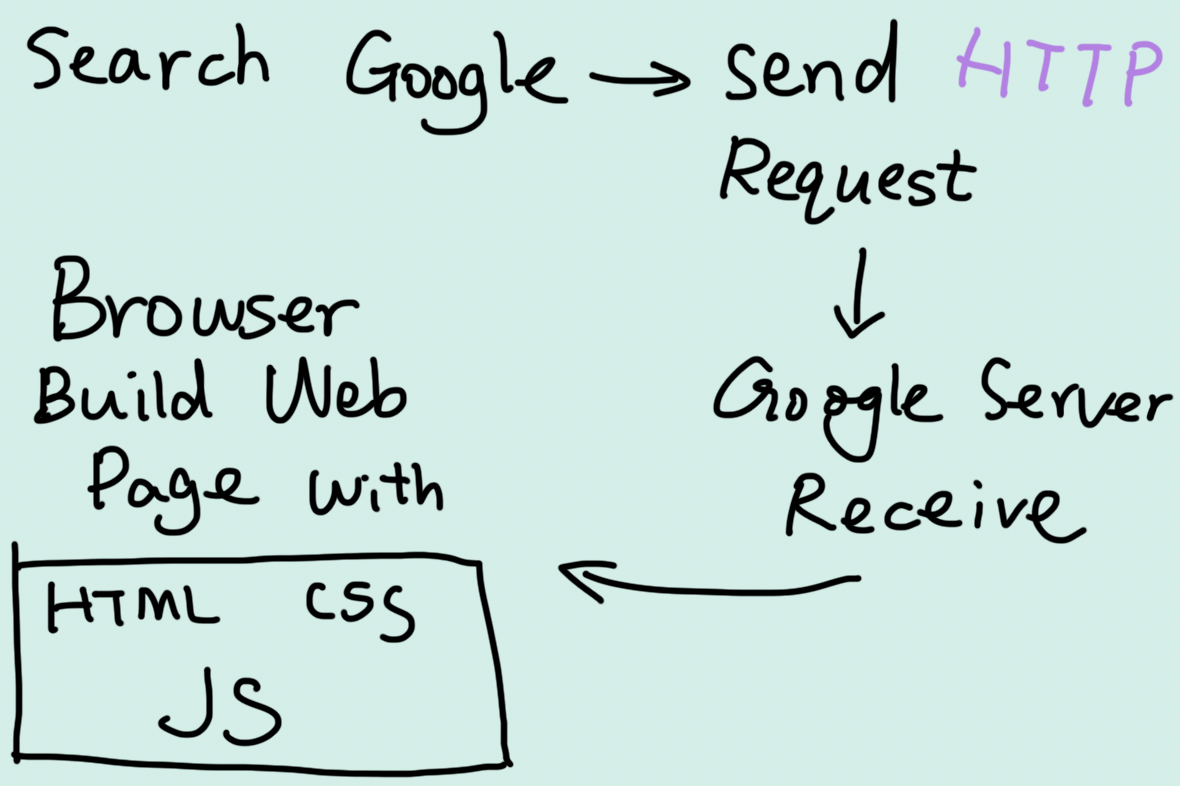 Search Google → send HTTP
Request
↓
Google Server
Receive
←
Browser
Build Web
Page with
HTML CSS
JS